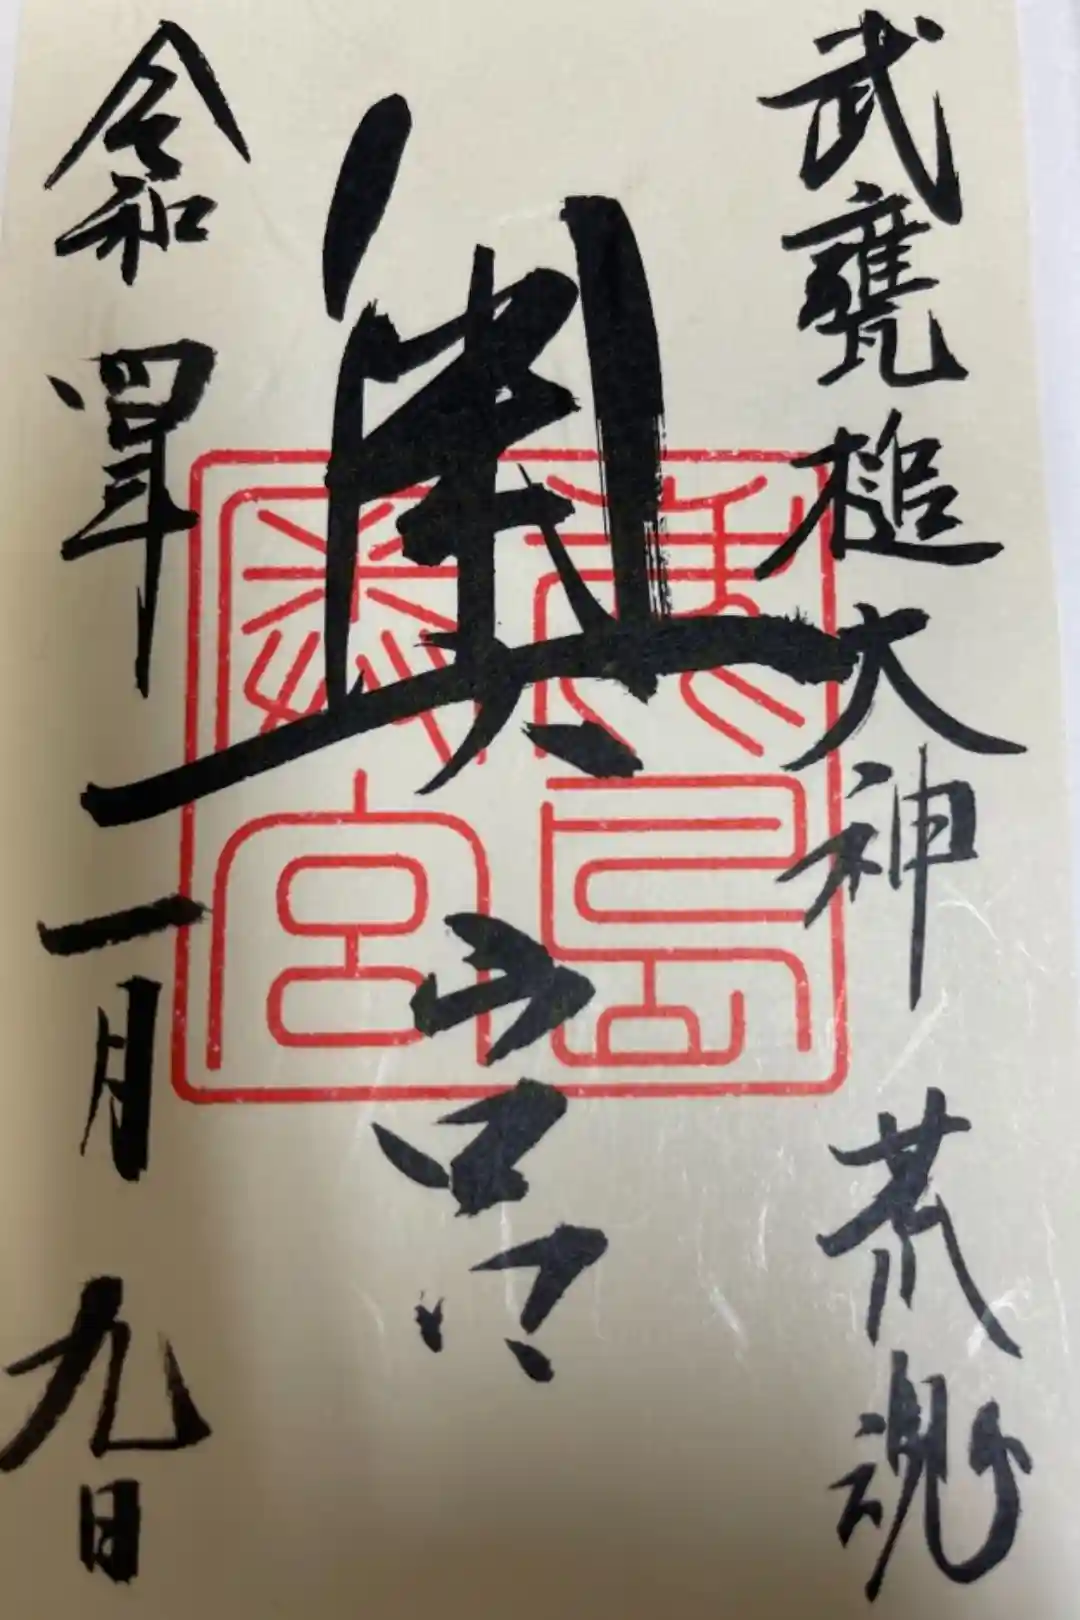 武甕槌大神 荒魂
奥宮
令和四年一月九日
鹿島
奥宮